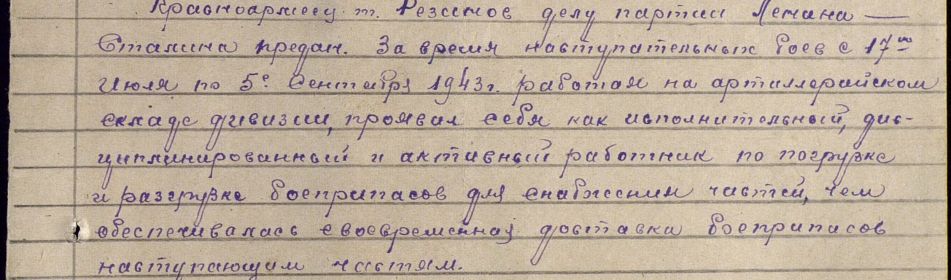 Красноармеец т. Резанов делу партии Ленина —
Сталина предан. За время наступательных боев с 17го
июля по 5е сентября 1943г. работая на артиллерийском
складе дивизии, проявил себя как исполнительный, дис-
циплинированный и активный работник по погрузке
и разгрузке боеприпасов для снабжения частей, чем
обеспечивалась своевременная доставка боеприпасов
наступающим частям.